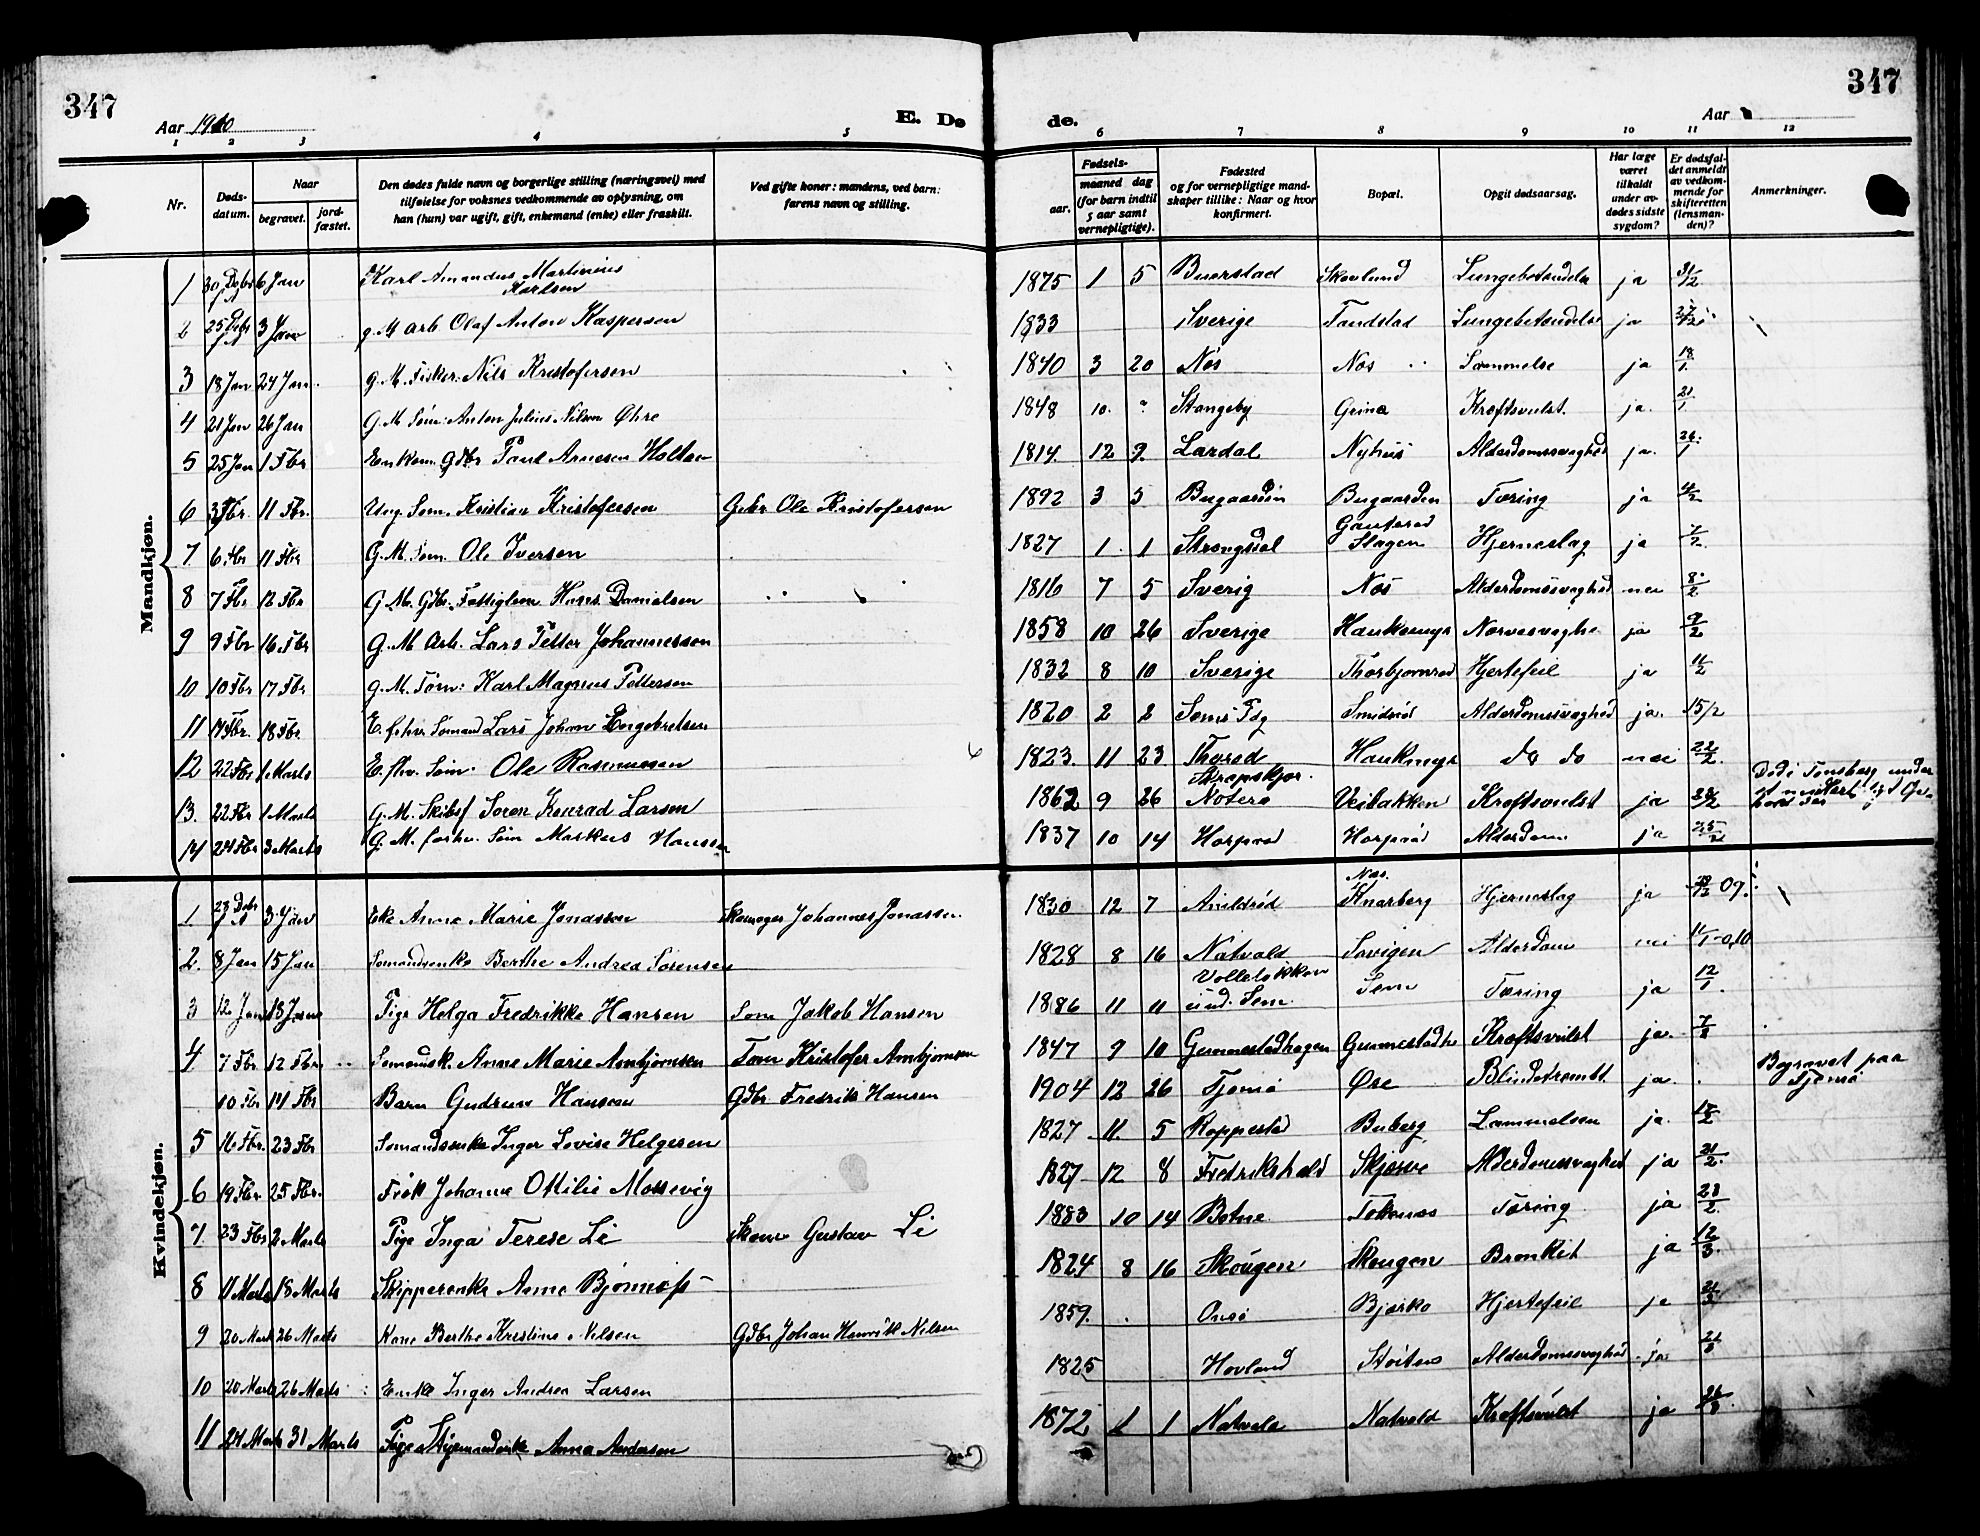 347
347
Aar 1910
E. Dø
de.
Aar
1 2 3 4 5 6 7 8 9 10 11 12
Nr.
Døds-
datum.
Naar
begravet.
jord-
fæstet.
Den dødes fulde navn og borgerlige stilling (næringsvei) med
tilføielse for voksnes vedkommende av oplysning, om
han (hun) var ugift, gift, enkemand (enke) eller fraskilt.
Ved gifte koner: mandens, ved barn:
farens navn og stilling.
Fødsels-
aar.
maaned dag
(for barn indtil
5 aar samt
vernepligtige).
Fødested
og for vernepligtige mand-
skaper tillike: Naar og hvor
konfirmert.
Bopæl.
Opgit dødsaarsag.
Har læge
været
tilkaldt
under av-
dødes sidste
sygdom?
Er dødsfal-
det anmeldt
av vedkom-
mende for
skifteretten
(lensman-
den)?
Anmerkninger.
Mandkjøn.
1 30 Dcbr 6 Jan Karl Amandus Martinius Karlsen 1875 1 5 Buerstad Skovlund Lungebetændelse ja 31/12
2 25 Dcbr 3 Jan g. M arb. Olaf Anton Kaspersen 1833 Sverige Tandstad Lungebetændelse ja 27/12
3 18 Jan 24 Jan. g. M. Fisker. Nils Kristofersen 1840 3 20 Nes Nes ja 18/1
4 21 Jan 26 Jan G. M Søm: Anton Julius Nilsen Øhre 1848 10. ? Stangeby Grimø Kræftsvulst. ja. 21/1
5 25 Jan 1 Fbr Enkem. Gdbr Paul Arnesen Holten 1814 12 9. Lardal Nyhus Alderdomssvaghed ja. 26/1
6 3 Fbr. 11 Fbr. Ung. Søm. Kristian Kristofersen Gdbr Ole Kristofersen 1892 3 5 Bugaarden Bugaarden Tæring ja 4/2
7 6 Fbr 11 Fbr G. M. Søm. Ole Iversen 1827 1 1 Slagen Hjerneslag ja 7/2
8 7 Fbr 12 Fbr G. M. Gdbr. Fattiglem Hans Danielsen 1816 7 5 Sverig Nes Alderdomssvaghed nei 8/2
9 9 Fbr 16 Fbr G. M arb. Lars Petter Johannesson 1858 10 26 Sverige Haukemyr Nervesvaghe ja 9/2
10 10 Fbr 17 Fbr g. M. Tøm: Karl Magnus Pettersen 1832 8 10 Sverige Thorbjørnrød Hjertefeil ja 11/2
11 14 Fbr. 18 Fbr. E. fohv Sømand Lars Johan Engebretsen 1820 2 2 Sems Pdg Smidsrød Alderdomssvaghed ja. 15/2
12 22 Fbr 1 Marts E. fhv. Søm. Ole Rasmussen 1823 11 23 Thorød Haukmyr do do nei 22/2
13. 22 Fbr 1 Marts G. M. Skibsf Søren Konrad Larsen 1862 9 26 Nøterø Veibakken Kræftsvulst ja 28/2 Død i Tønsberg under
14 24 Fbr 3 Marts G. M. forhv. Søm Markus Hansen 1837 10 14 Horperød Horperød Alderdom ja 25/2
Kvindekjøn.
1 28 Dcbr 3 Janv Eke Anne Marie Jonassen Skomager Johannes Jonassen. 1830 12 7 Arildrød Nes. Knarberg Hjerneslag ja 09.
2. 8 Jan 15 Jan Sømandsenke Berthe Andrea Sørensen 1828 8 16 Natvald Sevigen Alderdom nei 11/1-010
3 12 Jan 18 Jan Pige Helga Fredrikke Hansen Søm Jakob Hansen 1886 11 11 Volleløkken und. Sem. Sem Tæring ja 12/1.
4 7 Fbr 12 Fbr. Sømandsk. Anne Marie Arnbjørnsen Tøm Kristofer Arnbjørnsen 1847 9 10 Gunnestadhagen Gunnestadh Kræftsvulst ja. 7/2
10 Fbr 14 Fbr Barn Gudrun Hansen Gdbr Fredrik Hansen 1904 12 26 Tjømø Øre Blindetarmbt ja. Begravet paa Tjømø
5 16 Fbr. 23 Fbr Sømandsenke Inger Lovise Helgesen 1827 11. 5 Roppestad Buberg Lammelsen ja.
6 19 Fbr 25 Fbr. Frøk Johanne Ottilie Mossevig 1827 12 8 Fredrikshald Skjerve Alderdomssvaghed ja 21/2.
7 23 Fbr 2 Marts Pige Inga Terese Li Skom Gustav Li 1883 10 14 Botne Tokenes Tæring ja 23/2.
8 11 Marts 18 Marts Skipperenke Anne Bjønness 1824 8 16 Skougen Skougen Bronkit ja 12/3.
9 20 Marts 26 Marts Kone Berthe Kristine Nilsen Gdbr Johan Henrik Nilsen 1859. Onsø Bjerkø Hjertefeil ja 21/3
10 20 Marts 26 Marts Enke Inger Andrea Larsen 1825 Hovland Støiten Alderdomssvaghed ja. 21/3
11 24 Marts 31 Marts Pige Styrmandsenke Anna Andersen 1872 1 1 Natvale Natvald Kræftsvulst ja 26/3